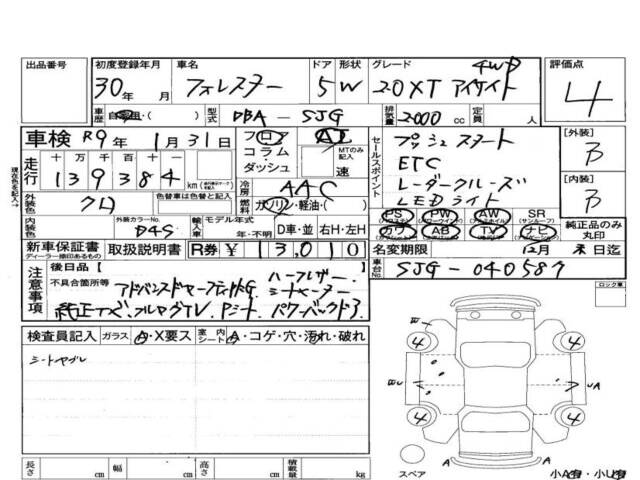 出品番号 初度登録年月 車名 ドア 形状 グレード 評価点
30年 月 フォレスター 5 W 2.0XT アイサイト 4WD 4
車歴 自家用・( ) 型式 DBA - SJG 排気量 2000 cc 定員 人
車検 R9年 1月31日 フロア AT セールスポイント プッシュスタート [外装]
走行 十万 万 千 百 十 一 コラム MTのみ記入 ETC B
139384 km ダッシュ 速 レーダークルーズ [内装]
現在色を記入→ 外装色 クロ 色替車は色替と記入 冷房 AAC LEDライト B
燃料 ガソリン・軽油・( ) PS PW AW SR (サンルーフ)
内装色 外装カラーNo. D4S 輸入車 モデル年式 年・不明 D車・並 右H・左H カワ AB TV ナビ 純正品のみ丸印
新車保証書 ディーラー捺印あるもの 取扱説明書 R券 ¥13,010 名変期限 2月 末日迄
注意事項 後日品 [ ] 車台No. SJG-040587
不具合箇所等 ハーフレザー シートヒーター
アドバンスドセーフティPKG
純正ナビ フルセグTV Pシート パワーバックドア
ロック車
検査員記入 ガラス A・X要ス 室内シート A・コゲ・穴・汚れ・破れ
4 4
4 4
スペア A A 小A有・小U有
長さ cm 幅 cm 高さ cm 積載量 kg